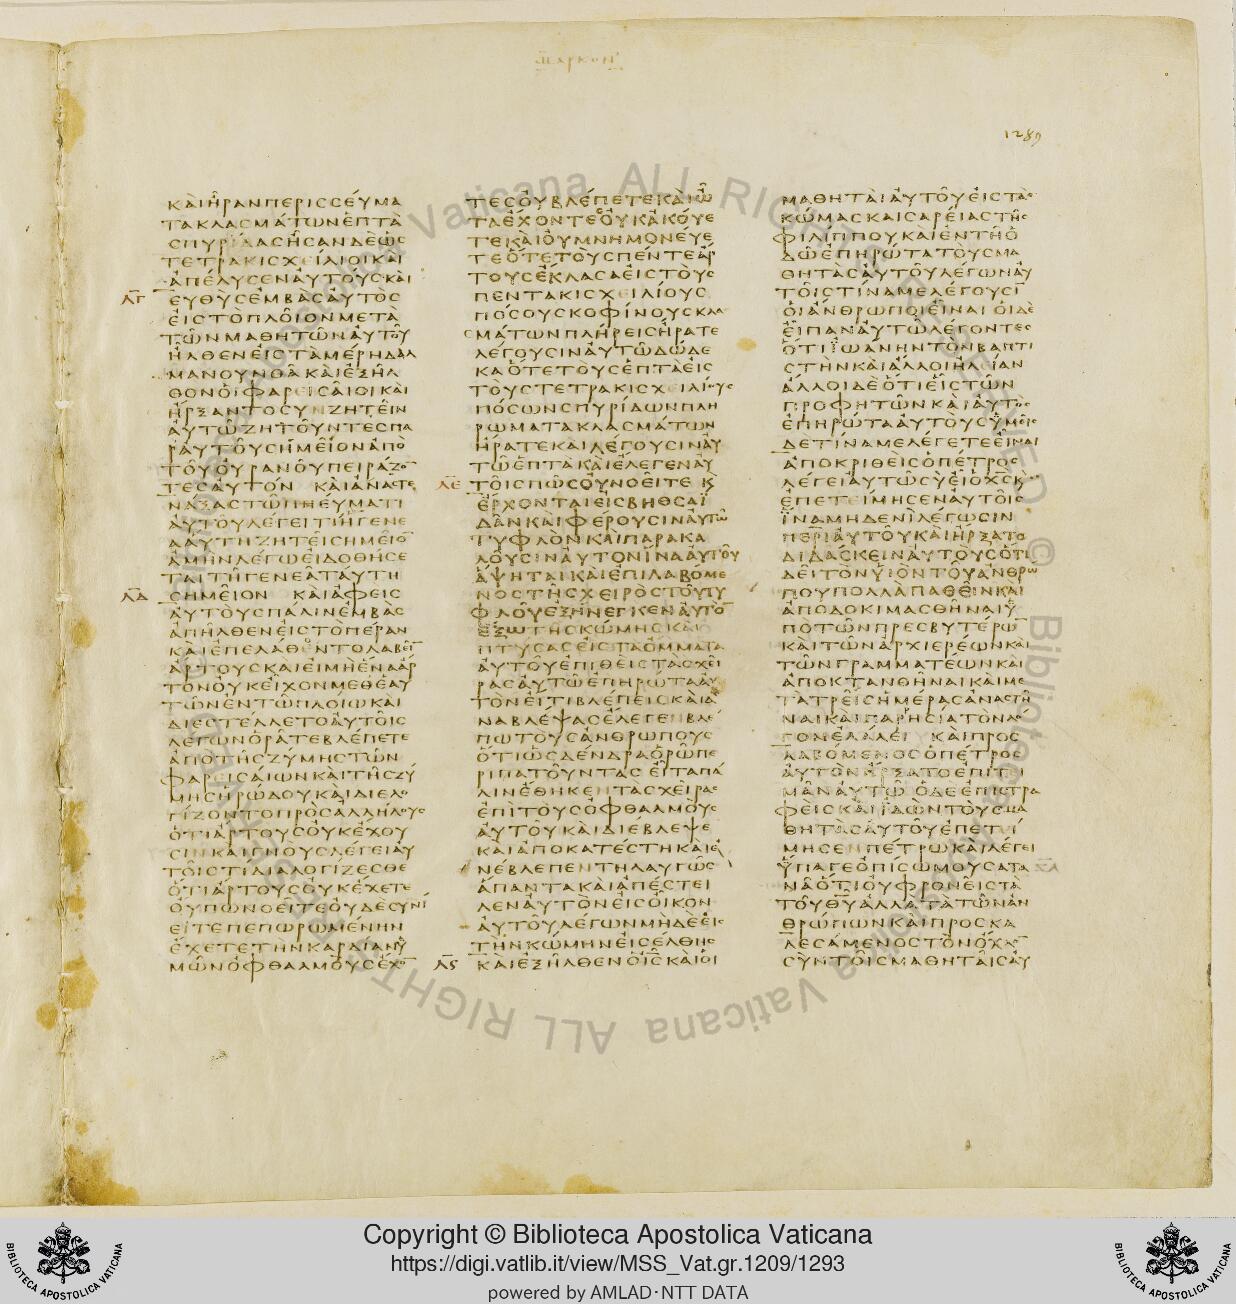 ΜΑΡΚΟΝ
1289
ΚΑΙΗΡΑΝΠΕΡΙССΕΥΜΑ
ΤΑΚΛΑСΜΑΤΩΝΕΠΤΑ
СΠΥΡΙΔΑСΗСΑΝΔΕΩС
ΤΕΤΡΑΚΙСΧΕΙΛΙΟΙΚΑΙ
ΑΠΕΛΥСΕΝΑΥΤΟΥСΚΑΙ
ΛΓ ΕΥΘΥСΕΜΒΑСΑΥΤΟС
ΕΙСΤΟΠΛΟΙΟΝΜΕΤΑ
ΤΩΝΜΑΘΗΤΩΝΑΥΤΟΥ
ΗΛΘΕΝΕΙСΤΑΜΕΡΗΔΑΛ
ΜΑΝΟΥΝΘΑΚΑΙΕΞΗΛ
ΘΟΝΟΙΦΑΡΕΙСΑΙΟΙΚΑΙ
ΗΡΞΑΝΤΟСΥΝΖΗΤΕΙΝ
ΑΥΤΩΖΗΤΟΥΝΤΕСΠΑ
ΡΑΥΤΟΥСΗΜΕΙΟΝΑΠΟ
ΤΟΥΟΥΡΑΝΟΥΠΕΙΡΑΖΟ
ΤΕСΑΥΤΟΝ ΚΑΙΑΝΑСΤΕ
ΝΑΞΑСΤΩΠΝΕΥΜΑΤΙ
ΑΥΤΟΥΛΕΓΕΙΤΙΗΓΕΝΕ
ΑΑΥΤΗΖΗΤΕΙСΗΜΕΙΟ
ΑΜΗΝΛΕΓΩΕΙΔΟΘΗСΕ
ΤΑΙΤΗΓΕΝΕΑΤΑΥΤΗ
ΛΔ СΗΜΕΙΟΝ ΚΑΙΑΦΕΙС
ΑΥΤΟΥСΠΑΛΙΝΕΜΒΑС
ΑΠΗΛΘΕΝΕΙСΤΟΠΕΡΑΝ
ΚΑΙΕΠΕΛΑΘΟΝΤΟΛΑΒΕΙ
ΑΡΤΟΥСΚΑΙΕΙΜΗΕΝΑΑΡ
ΤΟΝΟΥΚΕΙΧΟΝΜΕΘΕΑΥ
ΤΩΝΕΝΤΩΠΛΟΙΩΚΑΙ
ΔΙΕСΤΕΛΛΕΤΟΑΥΤΟΙС
ΛΕΓΩΝΟΡΑΤΕΒΛΕΠΕΤΕ
ΑΠΟΤΗСΖΥΜΗСΤΩΝ
ΦΑΡΕΙСΑΙΩΝΚΑΙΤΗСΖΥ
ΜΗСΗΡΩΔΟΥΚΑΙΔΙΕΛΟ
ΓΙΖΟΝΤΟΠΡΟСΑΛΛΗΛΟΥС
ΟΤΙΑΡΤΟΥСΟΥΚΕΧΟΥ
СΙΝΚΑΙΓΝΟΥСΛΕΓΕΙΑΥ
ΤΟΙСΤΙΔΙΑΛΟΓΙΖΕСΘΕ
ΟΤΙΑΡΤΟΥСΟΥΚΕΧΕΤΕ
ΟΥΠΩΝΟΕΙΤΕΟΥΔΕСΥΝΙ
ΕΙΤΕΠΕΠΩΡΩΜΕΝΗΝ
ΕΧΕΤΕΤΗΝΚΑΡΔΙΑΝΥ
ΜΩΝΟΦΘΑΛΜΟΥСΕΧΟ
ΤΕСΟΥΒΛΕΠΕΤΕΚΑΙΩ
ΤΑΕΧΟΝΤΕСΟΥΚΑΚΟΥΕ
ΤΕΚΑΙΟΥΜΝΗΜΟΝΕΥΕ
ΤΕΟΤΕΤΟΥСΠΕΝΤΕΑΡ
ΤΟΥСΕΚΛΑСΑΕΙСΤΟΥС
ΠΕΝΤΑΚΙСΧΕΙΛΙΟΥС
ΠΟСΟΥСΚΟΦΙΝΟΥСΚΛΑ
СΜΑΤΩΝΠΛΗΡΕΙСΗΡΑΤΕ
ΛΕΓΟΥСΙΝΑΥΤΩΔΩΔΕ
ΚΑΟΤΕΤΟΥСΕΠΤΑΕΙС
ΤΟΥСΤΕΤΡΑΚΙСΧΕΙΛΙΟΥС
ΠΟСΩΝСΠΥΡΙΔΩΝΠΛΗ
ΡΩΜΑΤΑΚΛΑСΜΑΤΩΝ
ΗΡΑΤΕΚΑΙΛΕΓΟΥСΙΝΑΥ
ΤΩΕΠΤΑΚΑΙΕΛΕΓΕΝΑΥ
ΛΕ ΤΟΙСΠΩСΟΥΝΟΕΙΤΕ Κ
ΕΡΧΟΝΤΑΙΕΙСΒΗΘСΑΪ
ΔΑΝΚΑΙΦΕΡΟΥСΙΝΑΥΤΩ
ΤΥΦΛΟΝΚΑΙΠΑΡΑΚΑ
ΛΟΥСΙΝΑΥΤΟΝΙΝΑΑΥΤΟΥ
ΑΨΗΤΑΙΚΑΙΕΠΙΛΑΒΟΜΕ
ΝΟСΤΗСΧΕΙΡΟСΤΟΥΤΥ
ΦΛΟΥΕΞΗΝΕΓΚΕΝΑΥΤΟ
ΕΞΩΤΗСΚΩΜΗСΚΑΙ
ΠΤΥСΑСΕΙСΤΑΟΜΜΑΤΑ
ΑΥΤΟΥΕΠΙΘΕΙСΤΑСΧΕΙ
ΡΑСΑΥΤΩΕΠΗΡΩΤΑΑΥ
ΤΟΝΕΙΤΙΒΛΕΠΕΙСΚΑΙΑ
ΝΑΒΛΕΨΑСΕΛΕΓΕΝΒΛΕ
ΠΩΤΟΥСΑΝΘΡΩΠΟΥС
ΟΤΙΩСΔΕΝΔΡΑΟΡΩΠΕ
ΡΙΠΑΤΟΥΝΤΑС ΕΙΤΑΠΑ
ΛΙΝΕΘΗΚΕΝΤΑСΧΕΙΡΑС
ΕΠΙΤΟΥСΟΦΘΑΛΜΟΥС
ΑΥΤΟΥΚΑΙΔΙΕΒΛΕΨΕ
ΚΑΙΑΠΟΚΑΤΕСΤΗΚΑΙΕ
ΝΕΒΛΕΠΕΝΤΗΛΑΥΓΩС
ΑΠΑΝΤΑΚΑΙΑΠΕСΤΕΙ
ΛΕΝΑΥΤΟΝΕΙСΟΙΚΟΝ
ΑΥΤΟΥΛΕΓΩΝΜΗΔΕΕΙС
ΤΗΝΚΩΜΗΝΕΙСΕΛΘΗС
ΛϚ ΚΑΙΕΞΗΛΘΕΝΟΙСΚΑΙΟΙ
ΜΑΘΗΤΑΙΑΥΤΟΥΕΙСΤΑС
ΚΩΜΑСΚΑΙСΑΡΕΙΑСΤΗС
ΦΙΛΙΠΠΟΥΚΑΙΕΝΤΗΟ
ΔΩΕΠΗΡΩΤΑΤΟΥСΜΑ
ΘΗΤΑСΑΥΤΟΥΛΕΓΩΝΑΥ
ΤΟΙСΤΙΝΑΜΕΛΕΓΟΥСΙ
ΟΙΑΝΘΡΩΠΟΙΕΙΝΑΙΟΙΔΕ
ΕΙΠΑΝΑΥΤΩΛΕΓΟΝΤΕС
ΟΤΙΪΩΑΝΗΝΤΟΝΒΑΠΤΙ
СΤΗΝΚΑΙΑΛΛΟΙΗΛΕΙΑΝ
ΑΛΛΟΙΔΕΟΤΙΕΙСΤΩΝ
ΠΡΟΦΗΤΩΝΚΑΙΑΥΤΟС
ΕΠΗΡΩΤΑΑΥΤΟΥСΥΜΕΙС
ΔΕΤΙΝΑΜΕΛΕΓΕΤΕΕΙΝΑΙ
ΑΠΟΚΡΙΘΕΙСΟΠΕΤΡΟС
ΛΕΓΕΙΑΥΤΩСΥΕΙΟΧС Κ
ΕΠΕΤΕΙΜΗСΕΝΑΥΤΟΙС
ΪΝΑΜΗΔΕΝΙΛΕΓΩСΙΝ
ΠΕΡΙΑΥΤΟΥΚΑΙΗΡΞΑΤΟ
ΔΙΔΑСΚΕΙΝΑΥΤΟΥСΟΤΙ
ΔΕΙΤΟΝΥΙΟΝΤΟΥΑΝΘΡΩ
ΠΟΥΠΟΛΛΑΠΑΘΕΙΝΚΑΙ
ΑΠΟΔΟΚΙΜΑСΘΗΝΑΙΫ
ΠΟΤΩΝΠΡΕСΒΥΤΕΡΩ
ΚΑΙΤΩΝΑΡΧΙΕΡΕΩΝΚΑΙ
ΤΩΝΓΡΑΜΜΑΤΕΩΝΚΑΙ
ΑΠΟΚΤΑΝΘΗΝΑΙΚΑΙΜΕ
ΤΑΤΡΕΙСΗΜΕΡΑСΑΝΑСΤΗ
ΝΑΙΚΑΙΠΑΡΗСΙΑΤΟΝΛΟ
ΓΟΝΕΛΑΛΕΙ ΚΑΙΠΡΟС
ΛΑΒΟΜΕΝΟСΟΠΕΤΡΟС
ΑΥΤΟΝΗΡΞΑΤΟΕΠΙΤΕΙ
ΜΑΝΑΥΤΩ ΟΔΕΕΠΙСΤΡΑ
ΦΕΙСΚΑΙΪΔΩΝΤΟΥСΜΑ
ΘΗΤΑСΑΥΤΟΥΕΠΕΤΕΙ
ΜΗСΕΝΠΕΤΡΩΚΑΙΛΕΓΕΙ
ΫΠΑΓΕΟΠΙСΩΜΟΥСΑΤΑ
ΝΑΟΤΙΟΥΦΡΟΝΕΙСΤΑ
ΤΟΥΘΥΑΛΛΑΤΑΤΩΝΑΝ
ΘΡΩΠΩΝΚΑΙΠΡΟСΚΑ
ΛΕСΑΜΕΝΟСΤΟΝΟΧΛΟ
СΥΝΤΟΙСΜΑΘΗΤΑΙСΑΥ
Copyright © Biblioteca Apostolica Vaticana
https://digi.vatlib.it/view/MSS_Vat.gr.1209/1293
powered by AMLAD·NTT DATA